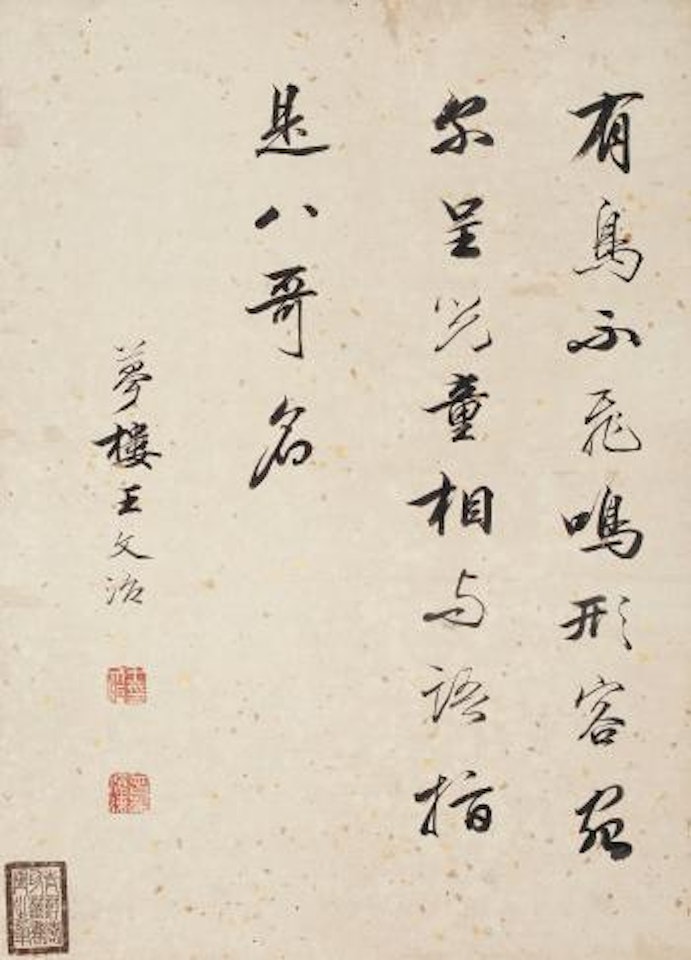 有鳥不飛鳴形容宛
尔呈兒童相与語指
是八哥名
夢樓王文治